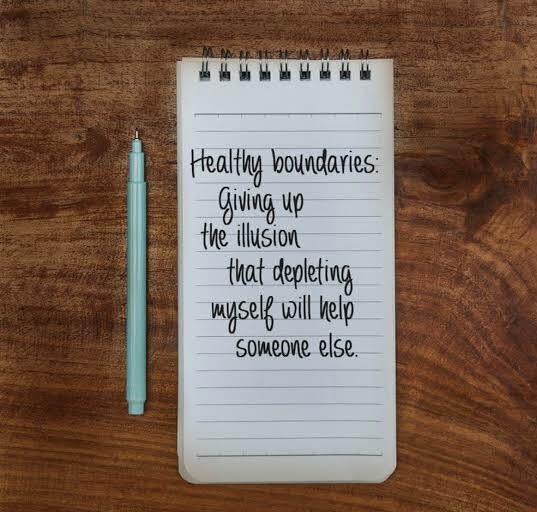 Healthy boundaries:
Giving up
the illusion
that depleting
myself will help
someone else.